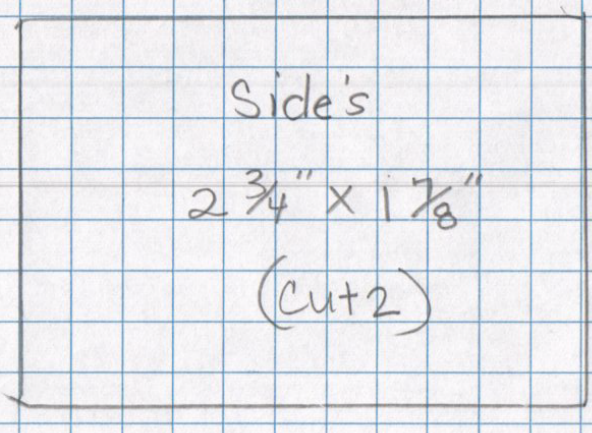 Side's
2 3/4" x 1 7/8"
(cut 2)